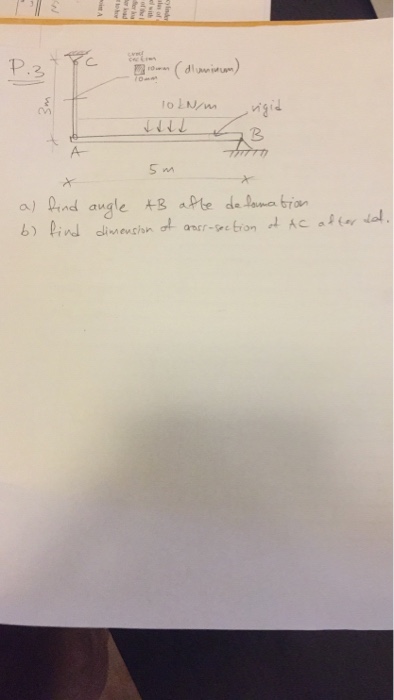 P.3
C
cross section
10mm (aluminum)
10mm
3m
10 kN/m
rigid
B
A
5m
a) find angle AB afte deformation
b) find dimension of cross-section of AC after def.